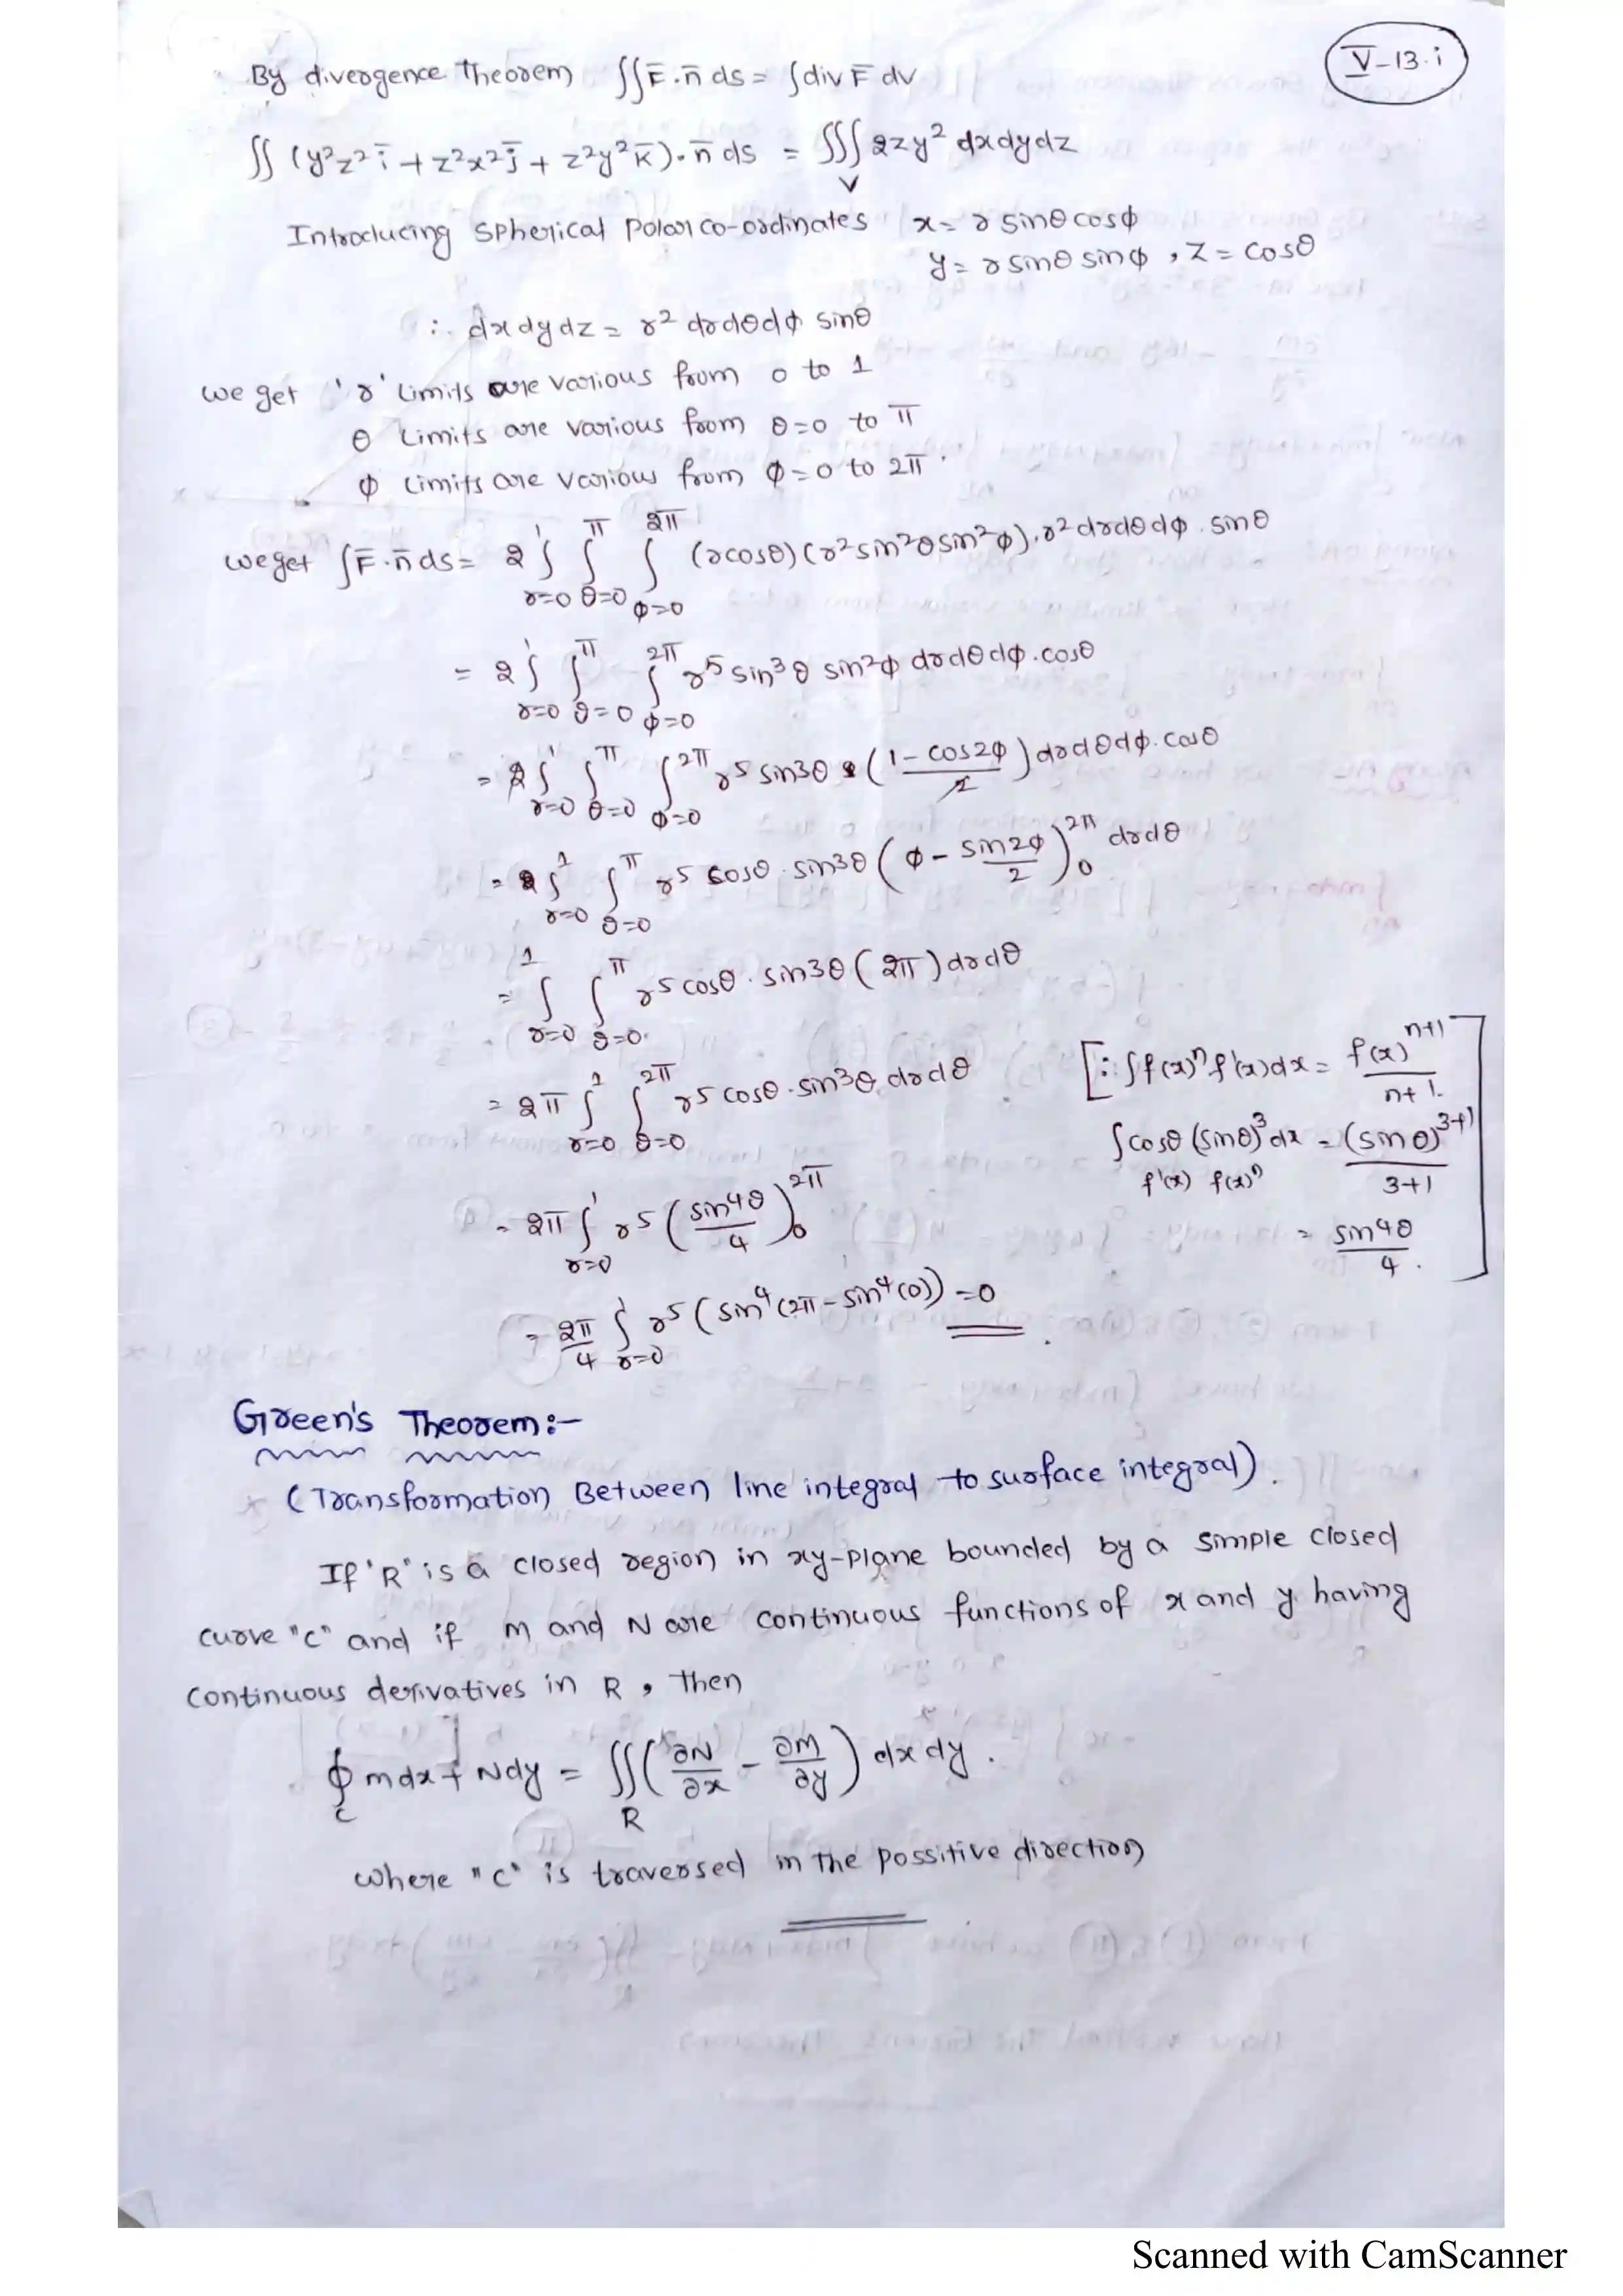 V-13.i
By divergence Theorem ∬F̄.n̄ ds = ∫div F̄ dv
∬ (y²z² ī + z²x² j̄ + z²y² k̄).n̄ ds = ∭_V 2zy² dxdydz
Introducing spherical polar co-ordinates x = r sinθ cosφ
y = r sinθ sinφ , z = cosθ
∴ dx dy dz = r² dr dθ dφ sinθ
we get 'r' Limits are various from 0 to 1
θ Limits are various from θ=0 to π
φ Limits are various from φ=0 to 2π.
we get ∫F̄.n̄ ds = 2 ∫_{r=0}^{1} ∫_{θ=0}^{π} ∫_{φ=0}^{2π} (r cosθ) (r² sin²θ sin²φ).r² dr dθ dφ . sinθ
= 2 ∫_{r=0}^{1} ∫_{θ=0}^{π} ∫_{φ=0}^{2π} r⁵ sin³θ sin²φ dr dθ dφ . cosθ
= 2 ∫_{r=0}^{1} ∫_{θ=0}^{π} ∫_{φ=0}^{2π} r5 sin3θ (1 - cos2φ / 2) dr dθ dφ . cosθ
= ∫_{r=0}^{1} ∫_{θ=0}^{π} r5 cosθ . sin3θ (φ - sin2φ / 2)_0^{2π} dr dθ
= ∫_{r=0}^{1} ∫_{θ=0}^{π} r5 cosθ . sin3θ (2π) dr dθ
= 2π ∫_{r=0}^{1} ∫_{θ=0}^{2π} r5 cosθ . sin3θ dr dθ
[∵ ∫f(x)ⁿ f'(x) dx = f(x)^{n+1} / n+1.
∫cosθ (sinθ)³ dx = (sinθ)^{3+1} / 3+1
f'(x) f(x)ⁿ
= sin4θ / 4 . ]
= 2π ∫_{r=0}^{1} r5 (sin4θ / 4)_0^{2π}
= 2π/4 ∫_{r=0}^{1} r5 (sin⁴(2π - sin⁴(0)) = 0 .
Green's Theorem :-
(Transformation Between line integral to surface integral).
If 'R' is a closed region in xy-plane bounded by a simple closed
curve "c" and if M and N are continuous functions of x and y having
continuous derivatives in R , Then
∮_c mdx + Ndy = ∬_R (∂N/∂x - ∂M/∂y) dx dy .
where "c" is traversed in the possitive direction
Scanned with CamScanner